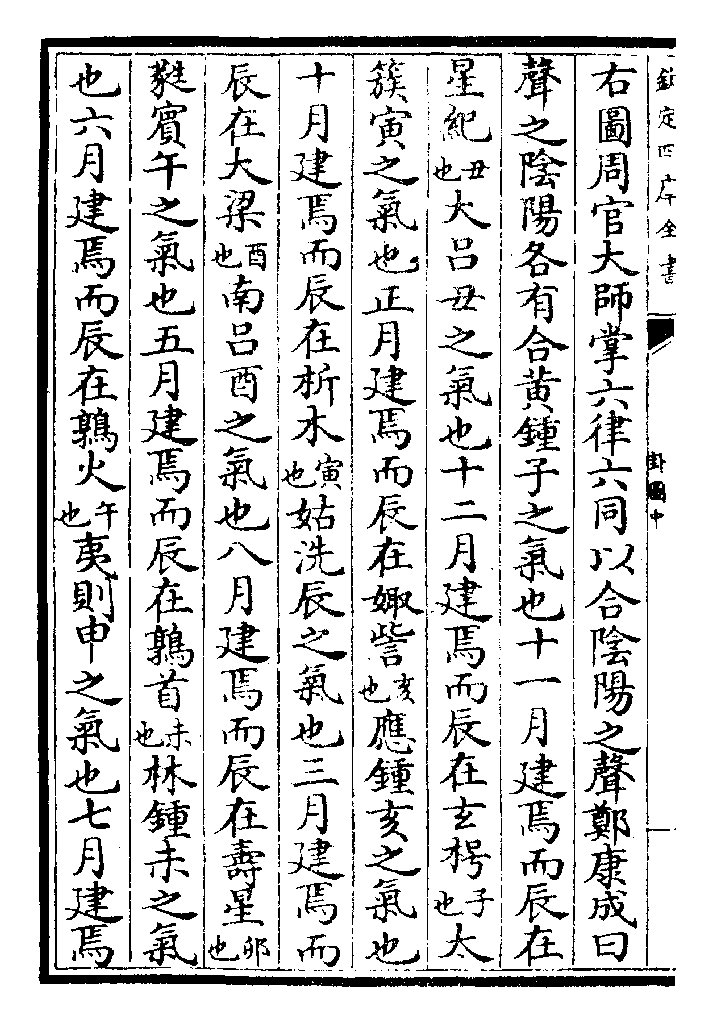 欽定四庫全書
卦圖中
右圖周官大師掌六律六同以合陰陽之聲鄭康成曰
聲之陰陽各有合黃鍾子之氣也十一月建焉而辰在
星紀丑也大呂丑之氣也十二月建焉而辰在玄枵子也太
簇寅之氣也正月建焉而辰在娵訾亥也應鍾亥之氣也
十月建焉而辰在析木寅也姑洗辰之氣也三月建焉而
辰在大梁酉也南呂酉之氣也八月建焉而辰在壽星卯也
蕤賓午之氣也五月建焉而辰在鶉首未也林鍾未之氣
也六月建焉而辰在鶉火午也夷則申之氣也七月建焉